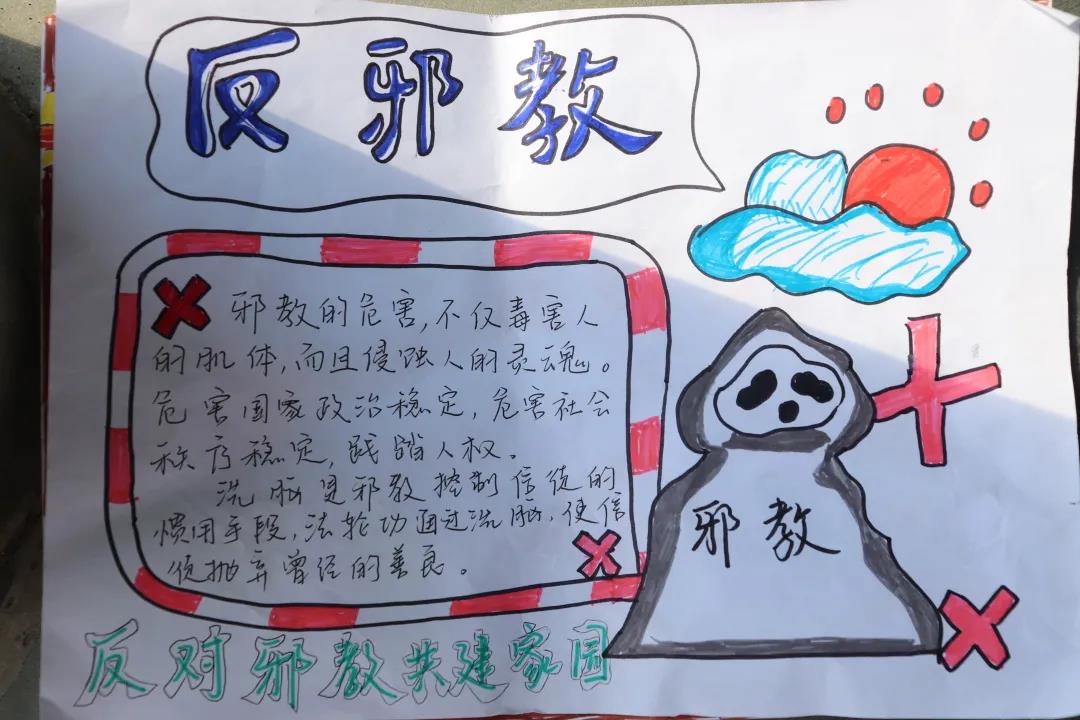 反邪教
邪教的危害,不仅毒害人
的肌体,而且侵蚀人的灵魂。
危害国家政治稳定,危害社会
秩序稳定,践踏人权。
洗脑是邪教控制信徒的
惯用手段,法轮功通过洗脑,使信
徒抛弃曾经的善良。
邪教
反对邪教共建家园